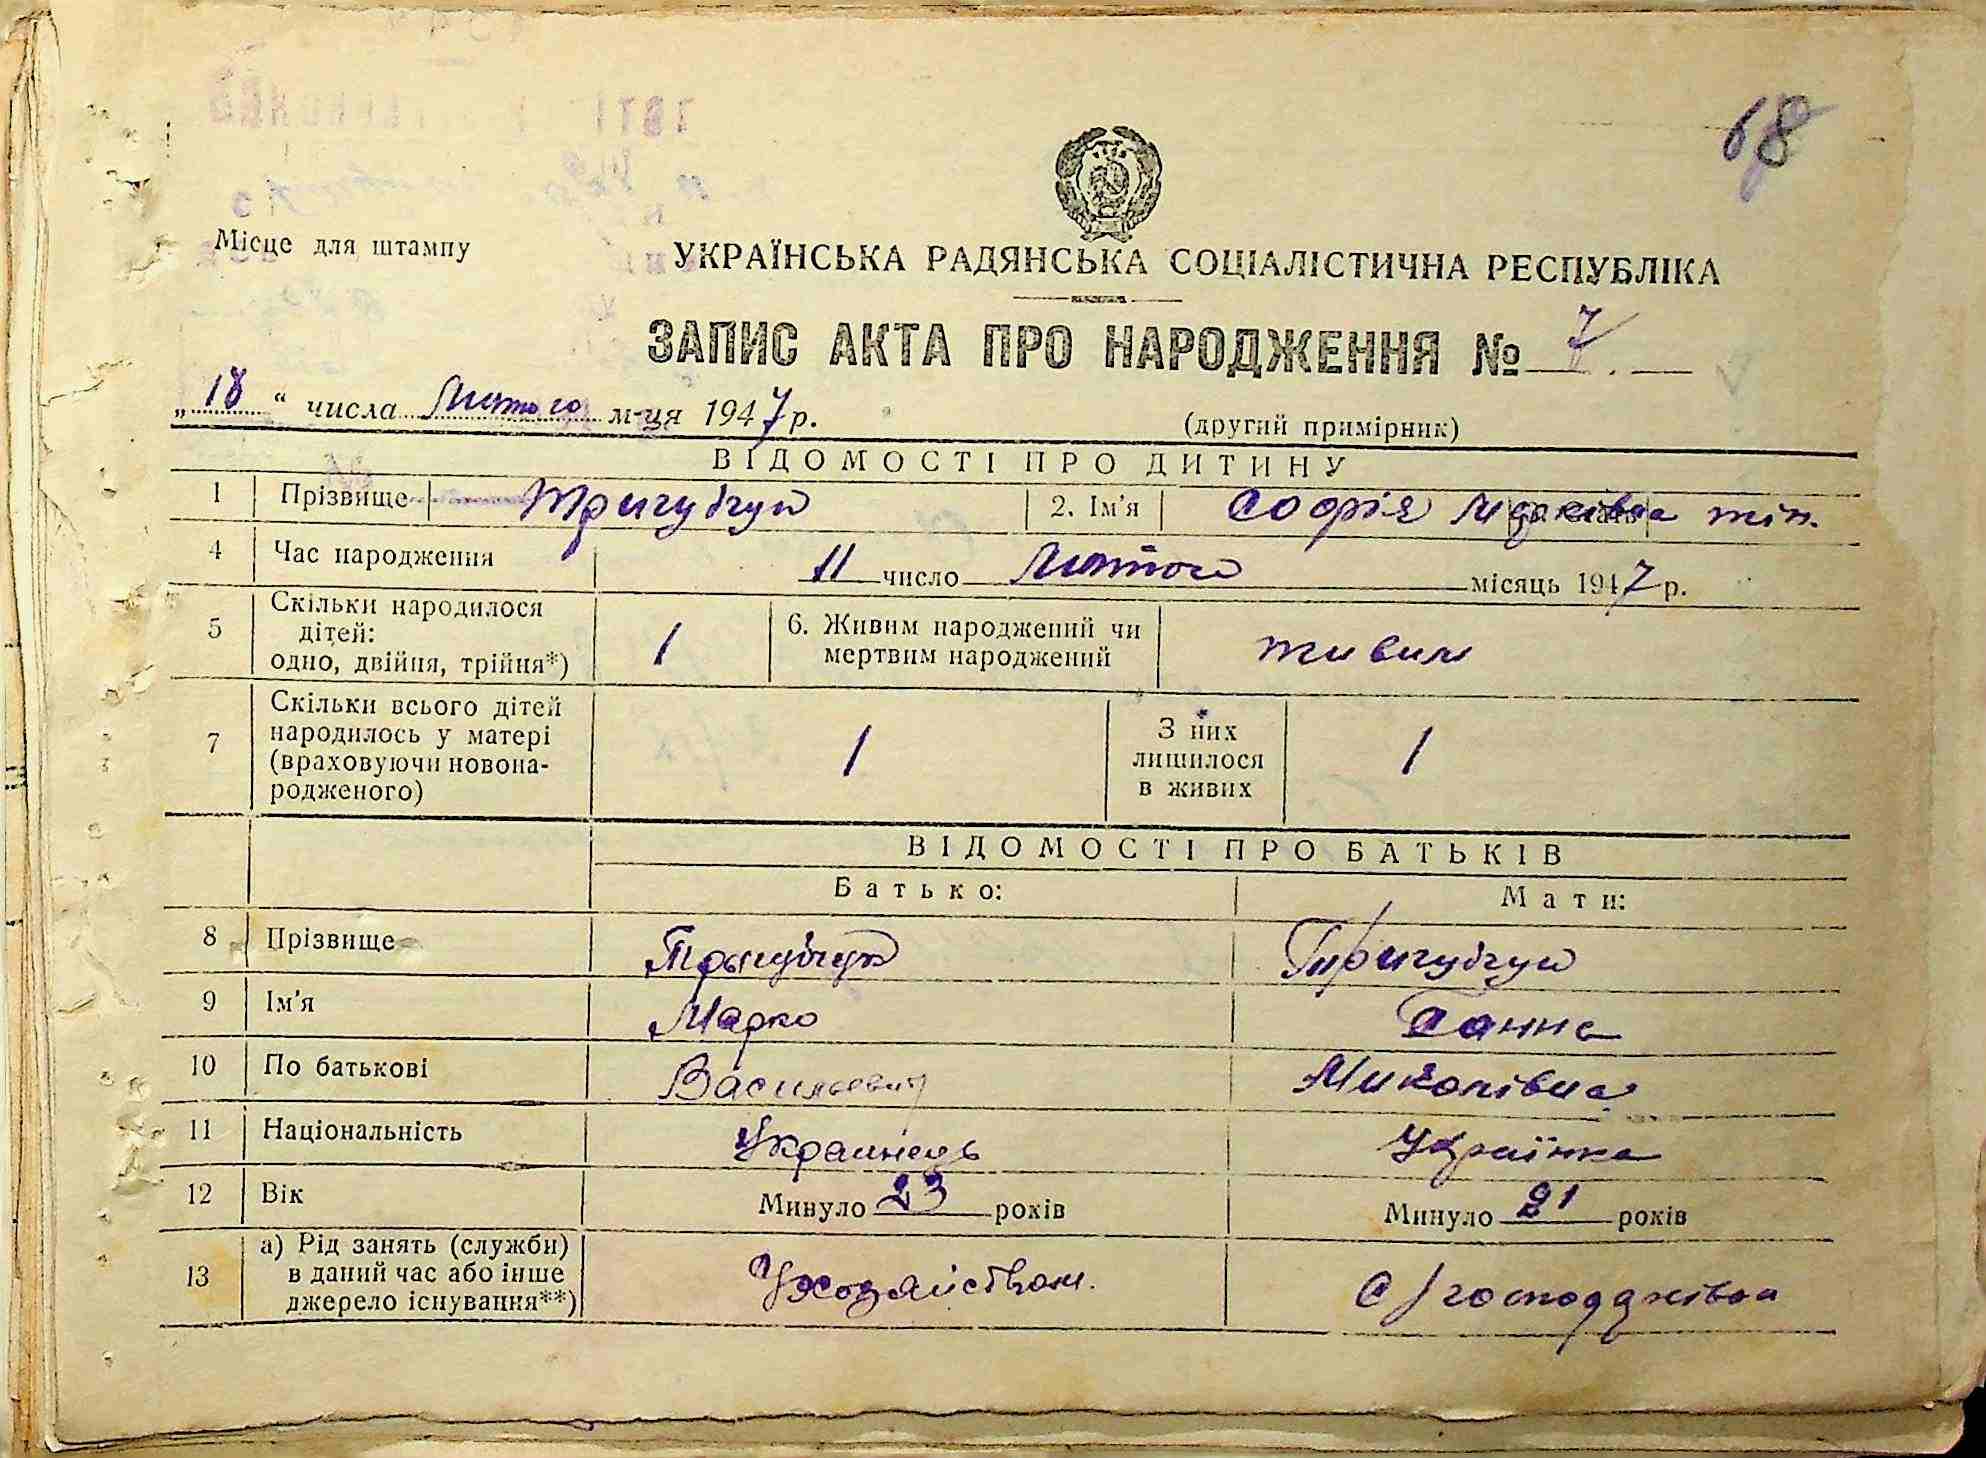 68
Місце для штампу
УКРАЇНСЬКА РАДЯНСЬКА СОЦІАЛІСТИЧНА РЕСПУБЛІКА
ЗАПИС АКТА ПРО НАРОДЖЕННЯ № 7
„18“ числа Лютого м-ця 1947 р.
(другий примірник)
ВІДОМОСТІ ПРО ДИТИНУ
1 Прізвище Тригубчук 2. Ім'я Софія Марківна жін.
4 Час народження 11 число Лютого місяць 1947 р.
5 Скільки народилося дітей: одно, двійня, трійня*) 1 6. Живим народжений чи мертвим народжений живим
7 Скільки всього дітей народилось у матері (враховуючи новонародженого) 1 З них лишилося в живих 1
ВІДОМОСТІ ПРО БАТЬКІВ
Батько: Мати:
8 Прізвище Тригубчук Тригубчук
9 Ім'я Марко Ганна
10 По батькові Васильевич Миколівна
11 Національність Украинець Українка
12 Вік Минуло 23 років Минуло 21 років
13 а) Рід занять (служби) в даний час або інше джерело існування**) С/господжівка